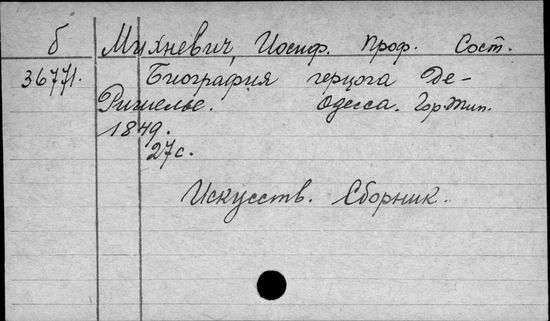 б Михневич, Иосиф. Проф. Сост.
36771. Биография герцога Де-
Ришелье. Одесса. Гор. тип.
1849.
27 с.
Искусств. Сборник.